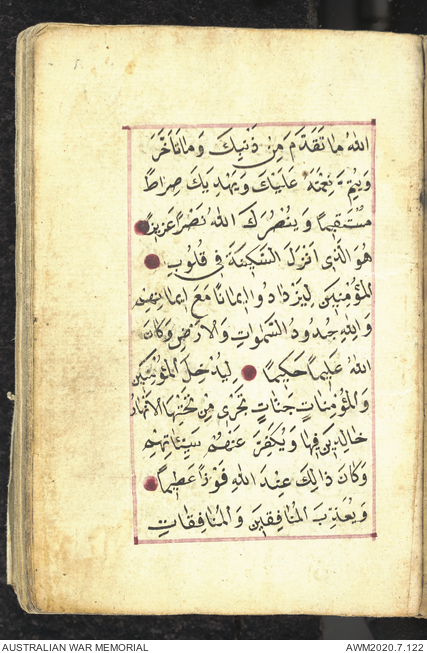 اللهُ مَا تَقَدَّمَ مِنْ ذَنْبِكَ وَمَا تَاَخَّرَ
وَيُتِمَّ نِعْمَتَهُ عَلَيْكَ وَيَهْدِيَكَ صِرَاطًا
مُسْتَقِيمًا وَيَنْصُرَكَ اللهُ نَصْرًا عَزِيزًا
هُوَ الَّذِى اَنْزَلَ السَّكِينَةَ فِى قُلُوبِ
لْمُؤْمِنِينَ لِيَزْدَادُوا اِيمَانًا مَعَ اِيمَانِهِمْ
وَلِلّٰهِ جُنُودُ السَّمٰوَاتِ وَالْاَرْضِ وَكَانَ
اللهُ عَلِيمًا حَكِيمًا لِيُدْخِلَ الْمُؤْمِنِينَ
وَالْمُؤْمِنَاتِ جَنَّاتٍ تَجْرِى مِنْ تَحْتِهَا الْاَنْهَارُ
خَالِدِينَ فِيهَا وَيُكَفِّرَ عَنْهُمْ سَيِّئَاتِهِمْ
وَكَانَ ذَالِكَ عِنْدَ اللهِ فَوْزًا عَظِيمًا
وَيُعَذِّبَ الْمُنَافِقِينَ وَالْمُنَافِقَاتِ
AUSTRALIAN WAR MEMORIAL AWM2020.7.122